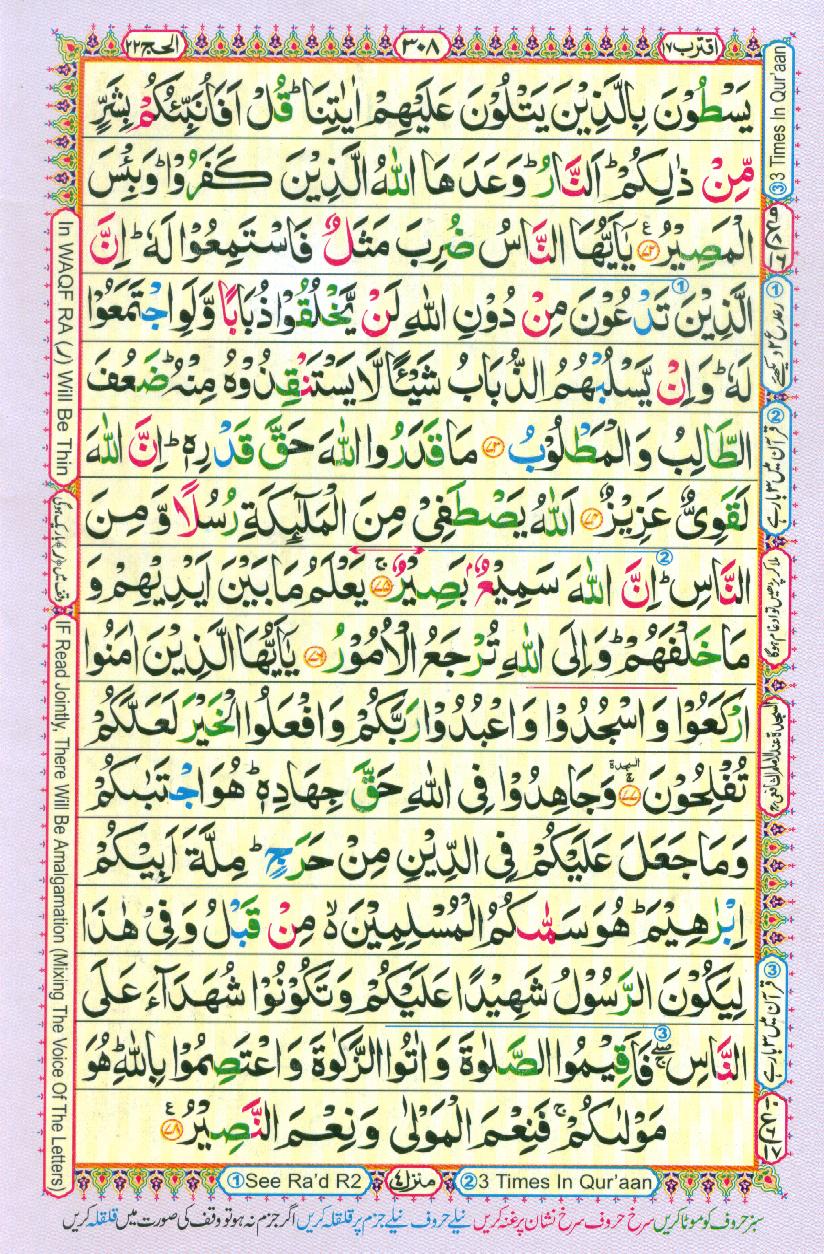 اقترب ۱۷
۳۰۸
الحج ۲۲
یَسْطُوْنَ بِالَّذِیْنَ یَتْلُوْنَ عَلَیْهِمْ اٰیٰتِنَا ؕ قُلْ اَفَاُنَبِّئُكُمْ بِشَرٍّ
مِّنْ ذٰلِكُمْ ؕ اَلنَّارُ ؕ وَعَدَهَا اللّٰهُ الَّذِیْنَ كَفَرُوْا ؕ وَبِئْسَ
الْمَصِیْرُ ﴿۷۲﴾ یٰۤاَیُّهَا النَّاسُ ضُرِبَ مَثَلٌ فَاسْتَمِعُوْا لَهٗ ؕ اِنَّ
الَّذِیْنَ تَدْعُوْنَ مِنْ دُوْنِ اللّٰهِ لَنْ یَّخْلُقُوْا ذُبَابًا وَّلَوِ اجْتَمَعُوْا
لَهٗ ؕ وَاِنْ یَّسْلُبْهُمُ الذُّبَابُ شَیْـًٔا لَّا یَسْتَنْقِذُوْهُ مِنْهُ ؕ ضَعُفَ
الطَّالِبُ وَالْمَطْلُوْبُ ﴿۷۳﴾ مَا قَدَرُوا اللّٰهَ حَقَّ قَدْرِهٖ ؕ اِنَّ اللّٰهَ
لَقَوِیٌّ عَزِیْزٌ ﴿۷۴﴾ اَللّٰهُ یَصْطَفِیْ مِنَ الْمَلٰٓئِكَةِ رُسُلًا وَّمِنَ
النَّاسِ ؕ اِنَّ اللّٰهَ سَمِیْعٌۢ بَصِیْرٌ ۚ﴿۷۵﴾ یَعْلَمُ مَا بَیْنَ اَیْدِیْهِمْ وَ
مَا خَلْفَهُمْ ؕ وَاِلَی اللّٰهِ تُرْجَعُ الْاُمُوْرُ ﴿۷۶﴾ یٰۤاَیُّهَا الَّذِیْنَ اٰمَنُوا
ارْكَعُوْا وَاسْجُدُوْا وَاعْبُدُوْا رَبَّكُمْ وَافْعَلُوا الْخَیْرَ لَعَلَّكُمْ
تُفْلِحُوْنَ ۚ﴿۷۷﴾ السجدة وَجَاهِدُوْا فِی اللّٰهِ حَقَّ جِهَادِهٖ ؕ هُوَ اجْتَبٰىكُمْ
وَمَا جَعَلَ عَلَیْكُمْ فِی الدِّیْنِ مِنْ حَرَجٍ ؕ مِلَّةَ اَبِیْكُمْ
اِبْرٰهِیْمَ ؕ هُوَ سَمّٰىكُمُ الْمُسْلِمِیْنَ ۙ مِنْ قَبْلُ وَفِیْ هٰذَا
لِیَكُوْنَ الرَّسُوْلُ شَهِیْدًا عَلَیْكُمْ وَتَكُوْنُوْا شُهَدَآءَ عَلَی
النَّاسِ ۖۚ فَاَقِیْمُوا الصَّلٰوةَ وَاٰتُوا الزَّكٰوةَ وَاعْتَصِمُوْا بِاللّٰهِ ؕ هُوَ
مَوْلٰىكُمْ ۚ فَنِعْمَ الْمَوْلٰی وَنِعْمَ النَّصِیْرُ ﴿۷۸﴾
③3 Times In Qur'aan
② قرآن میں ۳ بار ہے
③ قرآن میں ۳ بار ہے
In WAQF RA (ر) Will Be Thin
IF Read Jointly, There Will Be Amalgamation (Mixing The Voice Of The Letters)
①See Ra'd R2
منزل ۴
②3 Times In Qur'aan
سبز حروف کو موٹا کریں سرخ حروف سرخ نشان پر غنہ کریں نیلے حروف نیلے جزم پر قلقلہ کریں اگر جزم نہ ہو تو وقف کی صورت میں قلقلہ کریں